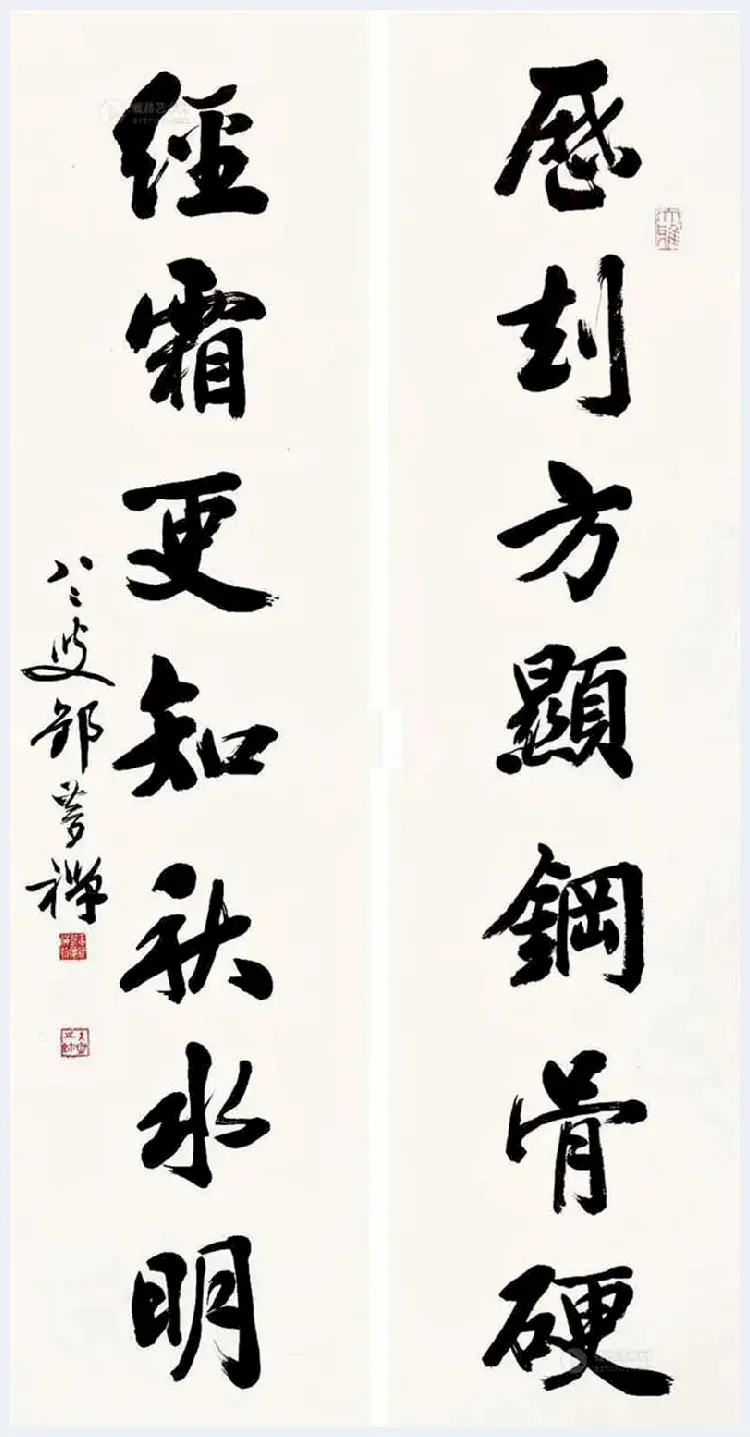 歷刦方顯鋼骨硬
經霜更知秋水明
八二叟鄒夢禪